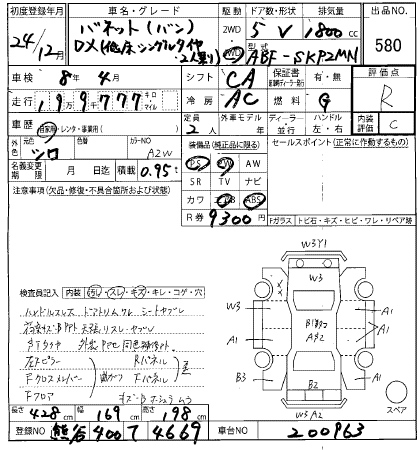 初度登録年月 車名・グレード 駆動 ドア数・形状 排気量 出品NO.
24年/12月 バネット(バン) 2WD 5 V 1800cc 580
DX(低床シングルタイヤ・2人乗り) 4WD 型式 ABF-SKP2MN
車検 8年 4月 シフト CA 保証書 有・無 評価点
走行 19万9777 キロ マイル 冷房 AC 燃料 G R
車歴 自家用・レンタ・事業用( ) 定員 2人 外車モデル 年 ディーラー・並行 ハンドル 左・右 内装評価 C
外装 元色 シロ 色替 カラーNO A2W 装備品(純正品に限る) セールスポイント(正常に作動するもの)
名義変更期限 月 日迄 積載 0.95t PS PW AW
SR TV ナビ
注意事項(欠品・修復・不具合箇所および状態) カワ エアB ABS
R券 9300円
Fガラス トビ石・キズ・ヒビ・ワレ・リペア跡
W3Y1
W3
検査員記入 内装 汚レ・スレ・キズ・キレ・コゲ・穴
W3 A1
A1 A1
B3 A1
B2
W3A2
スペア
左Fピラー Rパネル
Fクロスメンバー 曲がり Fパネル 歪
Fフロア
長さ 428cm 幅 169cm 高さ 198cm
登録NO 熊谷 400 て 4669 車台NO 200963